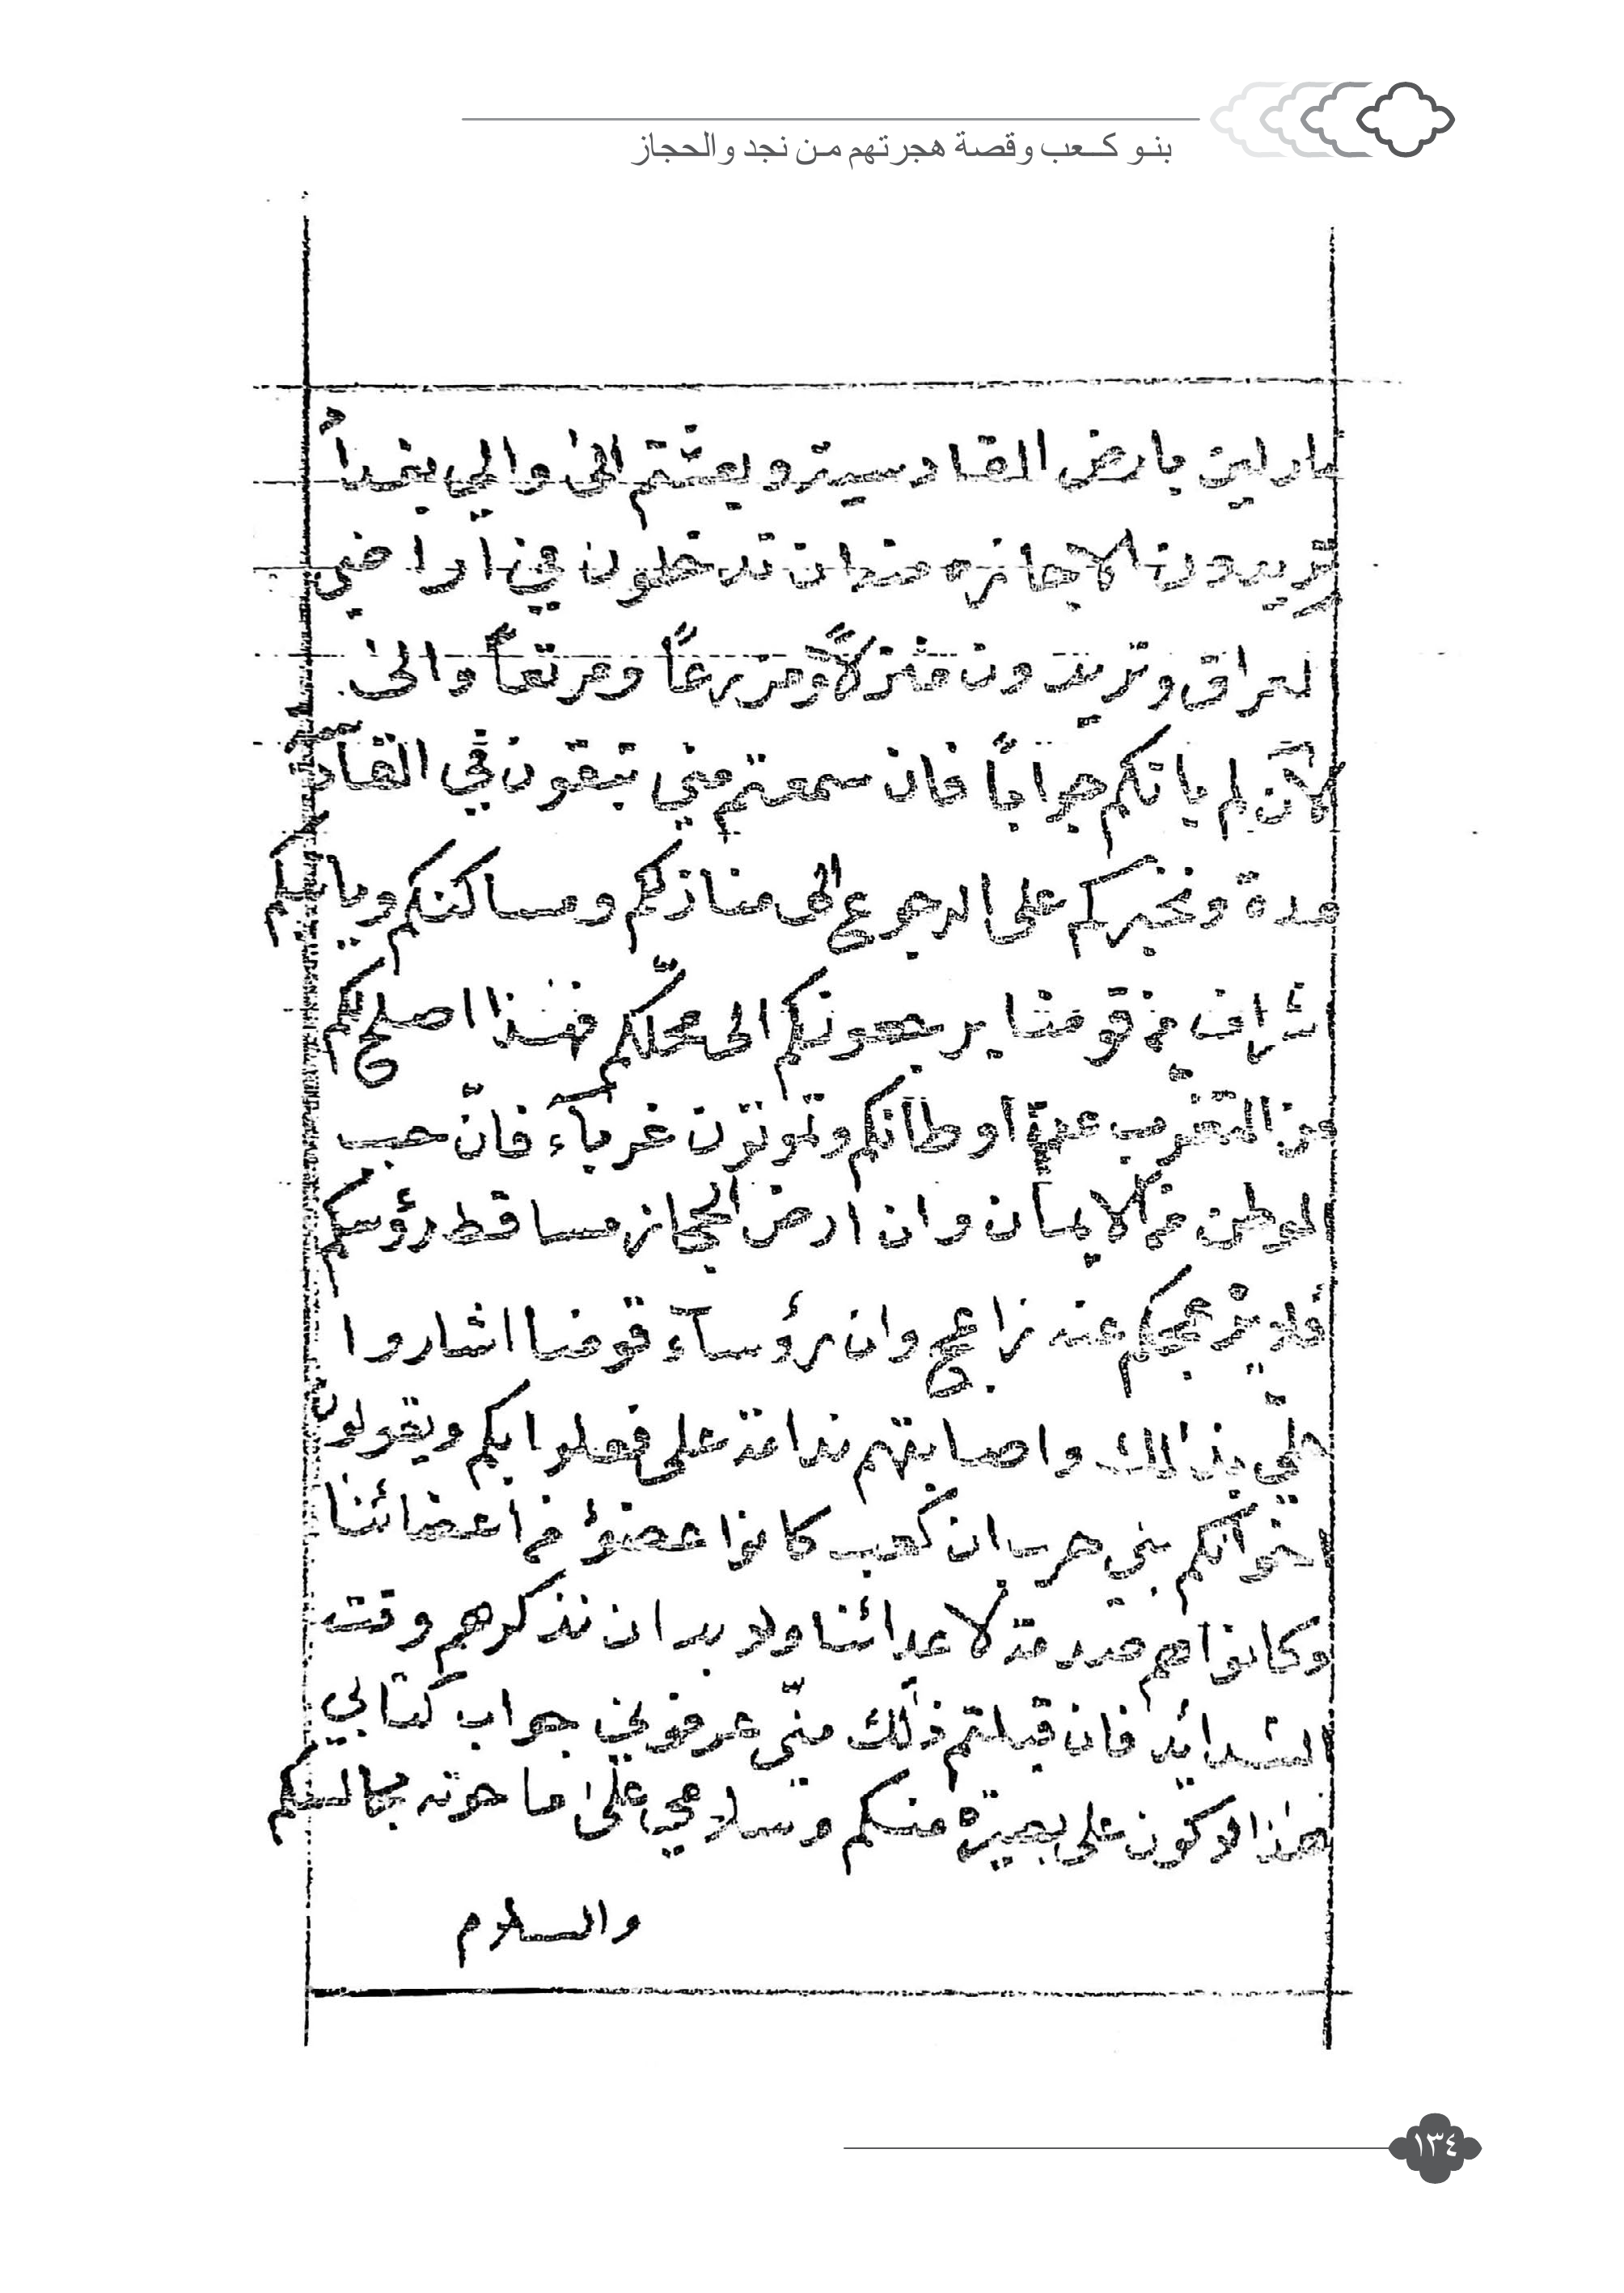 بنو كعب وقصة هجرتهم من نجد والحجاز
نازلين بارض القادسية وبعثتم الىٰ والي بغداً
تريدون الاجازه منه ان تدخلون في اراضي
لعراق وتريدون منزلاً ومزرعاً ومرتعاً والىٰ
لآن لم ياتكم جواباً فان سمعتم مني تبقون في القآد
مدة ونخبركم على الرجوع الى منازلكم ومساكنكم وياتيكم
شراف من قومنا يرجعونكم الى محلّكم فهذا اصلح لكم
من التغرّب عن اوطانكم وتموتوّن غربآء فانّ حب
لوطن من الايمان وان ارض الحجاز مساقط رؤسكم
فلا يزعجكم عنه زاعج وان رؤسآء قومنا اشاروا
عليّ بذالك واصابتهم ندامة على فعلوا بكم ويقولون
اخوانكم بني حرب ان كعب كانوا عضوٌ من اعضائنا
وكانوا هم صدمة لاعدائنا ولا بد ان نذكرهم وقت
لشدائد فان قبلتم ذلك منّي عرفوني جواب كتابي
هٰذا لاكون على بصيرة منكم وسلامي علىٰ ما حوته مجالسكم
والسلام
١٣٤